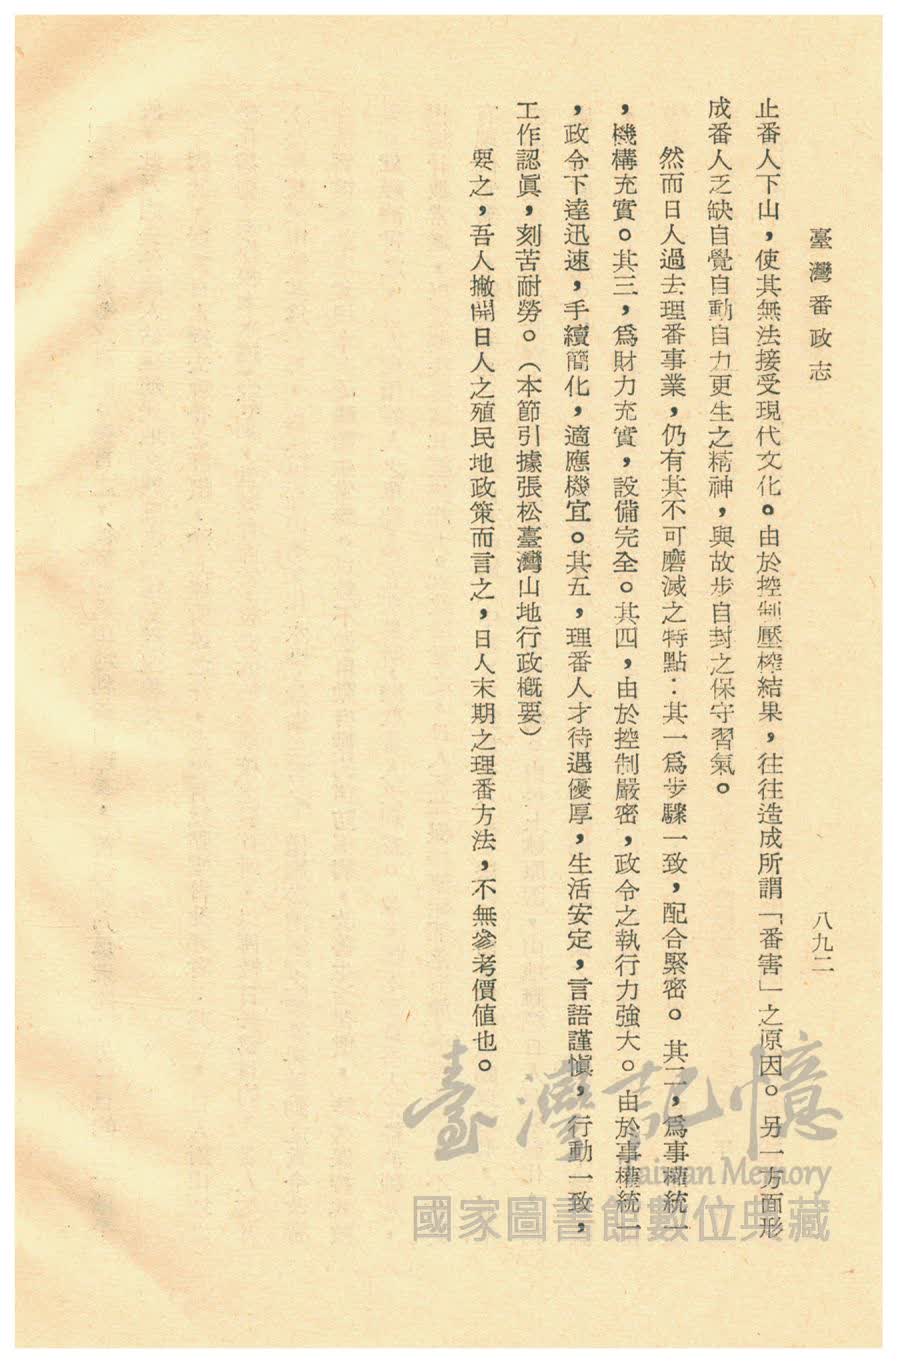 臺灣番政志
八九二
止番人下山，使其無法接受現代文化。由於控制壓榨結果，往往造成所謂「番害」之原因。另一方面形
成番人乏缺自覺自動自力更生之精神，與故步自封之保守習氣。
然而日人過去理番事業，仍有其不可磨滅之特點：其一爲步驟一致，配合緊密。其二，爲事權統一
，機構充實。其三，爲財力充實，設備完全。其四，由於控制嚴密，政令之執行力強大。由於事權統一
，政令下達迅速，手續簡化，適應機宜。其五，理番人才待遇優厚，生活安定，言語謹愼，行動一致，
工作認眞，刻苦耐勞。（本節引據張松臺灣山地行政槪要）
要之，吾人撇開日人之殖民地政策而言之，日人末期之理番方法，不無參考價值也。
臺灣記憶
Taiwan Memory
國家圖書館數位典藏